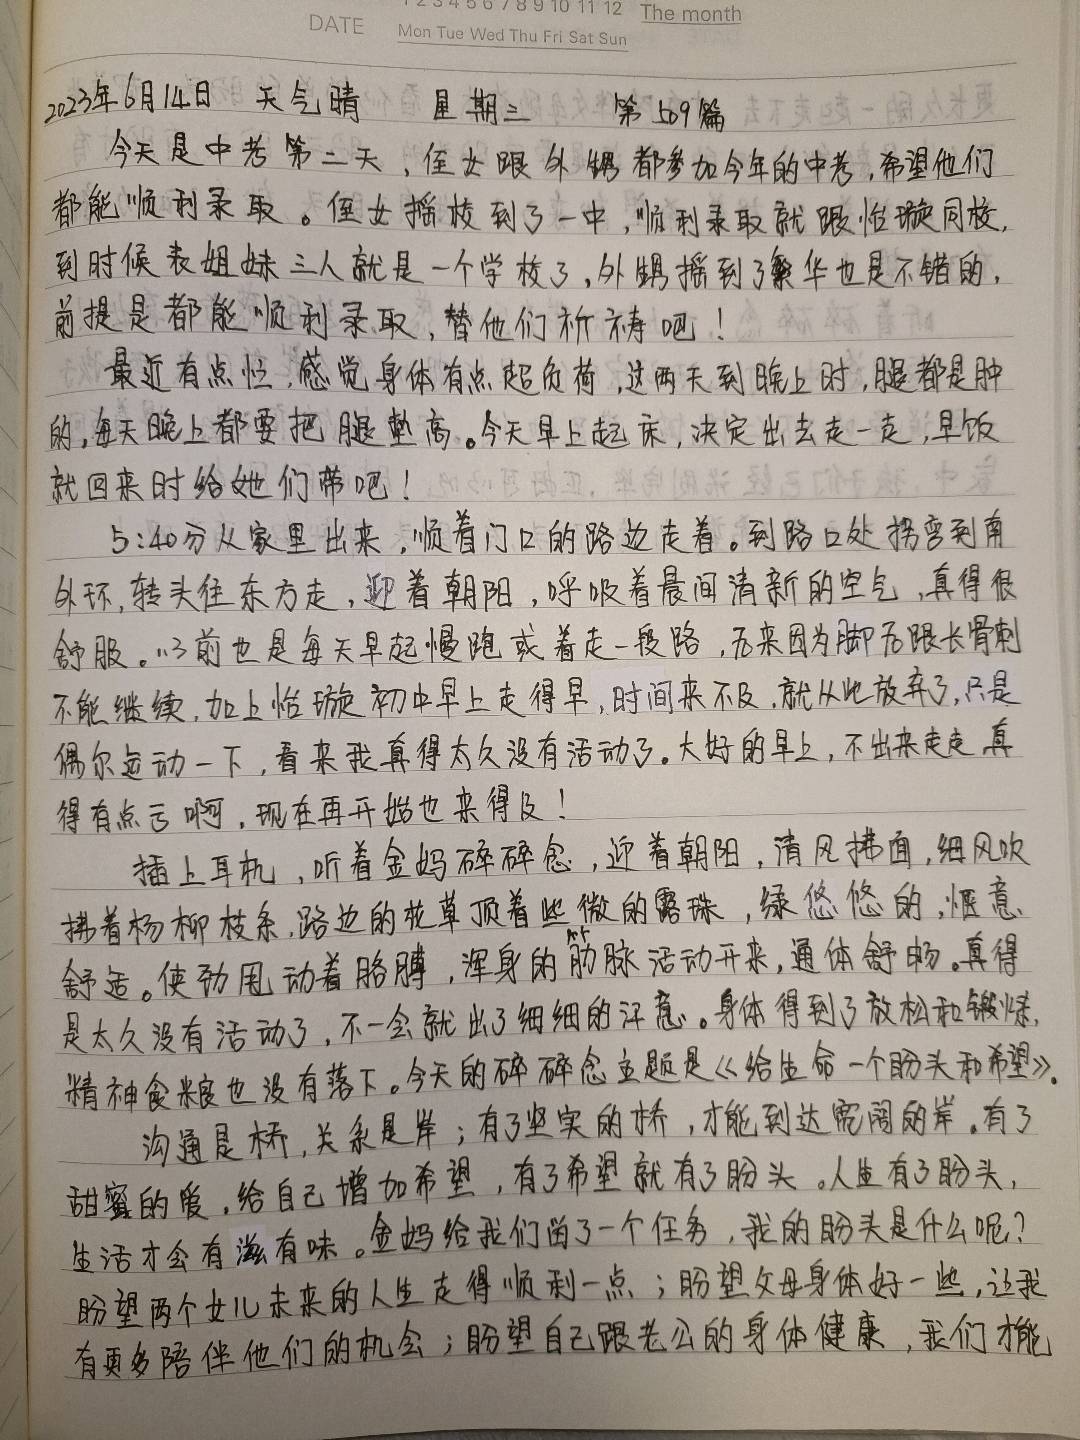 1 2 3 4 5 6 7 8 9 10 11 12 The month
DATE Mon Tue Wed Thu Fri Sat Sun
2023年6月14日 天气晴 星期三 第509篇
今天是中考第二天，侄女跟外甥都参加今年的中考，希望他们
都能顺利录取。侄女摇校到了一中，顺利录取就跟怡璇同校，
到时候表姐妹三人就是一个学校了，外甥摇到了繁华也是不错的，
前提是都能顺利录取，替他们祈祷吧！
最近有点忙，感觉身体有点超负荷，这两天到晚上时，腿都是肿
的，每天晚上都要把腿垫高。今天早上起床，决定出去走一走，早饭
就回来时给她们带吧！
5:40分从家里出来，顺着门口的路边走着。到路口处拐弯到南
外环，转头往东方走，迎着朝阳，呼吸着晨间清新的空气，真得很
舒服。以前也是每天早起慢跑或着走一段路，后来因为脚后跟长骨刺
不能继续，加上怡璇初中早上走得早，时间来不及，就从此放弃了，只是
偶尔运动一下，看来我真得太久没有活动了。大好的早上，不出来走走真
得有点亏啊，现在再开始也来得及！
插上耳机，听着金妈碎碎念，迎着朝阳，清风拂面，细风吹
拂着杨柳枝条，路边的花草顶着些微的露珠，绿悠悠的，惬意
舒适。使劲甩动着胳膊，浑身的筋脉活动开来，通体舒畅。真得
是太久没有活动了，不一会就出了细细的汗意。身体得到了放松和锻炼，
精神食粮也没有落下。今天的碎碎念主题是《给生命一个盼头和希望》。
沟通是桥，关系是岸；有了坚实的桥，才能到达宽阔的岸。有了
甜蜜的爱，给自己增加希望，有了希望就有了盼头。人生有了盼头，
生活才会有滋有味。金妈给我们留了一个任务，我的盼头是什么呢？
盼望两个女儿未来的人生走得顺利一点；盼望父母身体好一些，让我
有更多陪伴他们的机会；盼望自己跟老公的身体健康，我们才能